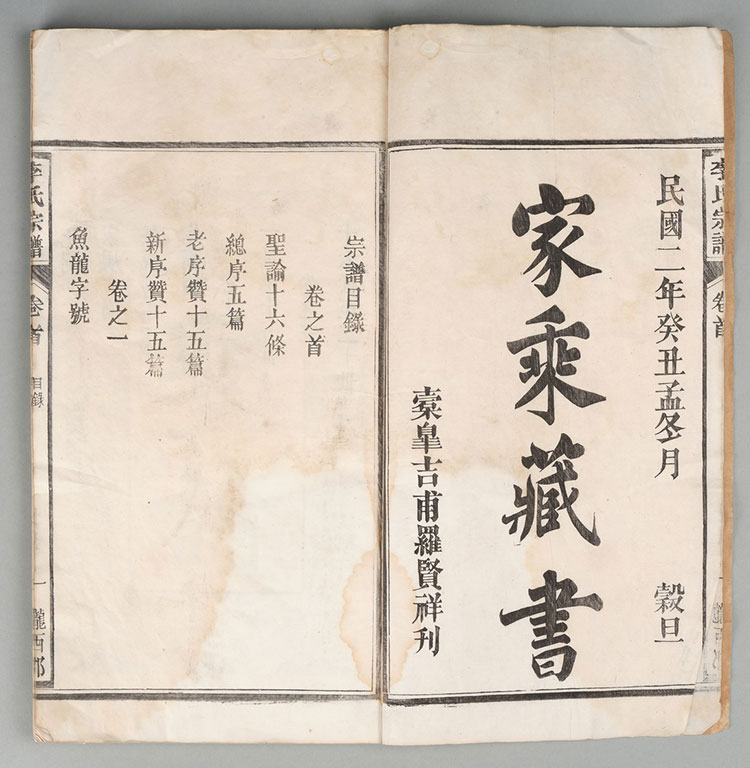 李氏宗譜
卷首
民國二年癸丑孟冬月 穀旦
家乘藏書
橐臯吉甫羅賢祥刊
宗譜目錄
卷之首
聖諭十六條
總序五篇
老序贊十五篇
新序贊十五篇
卷之一
魚龍字號
李氏宗譜
卷首
目錄
一
隴西郡